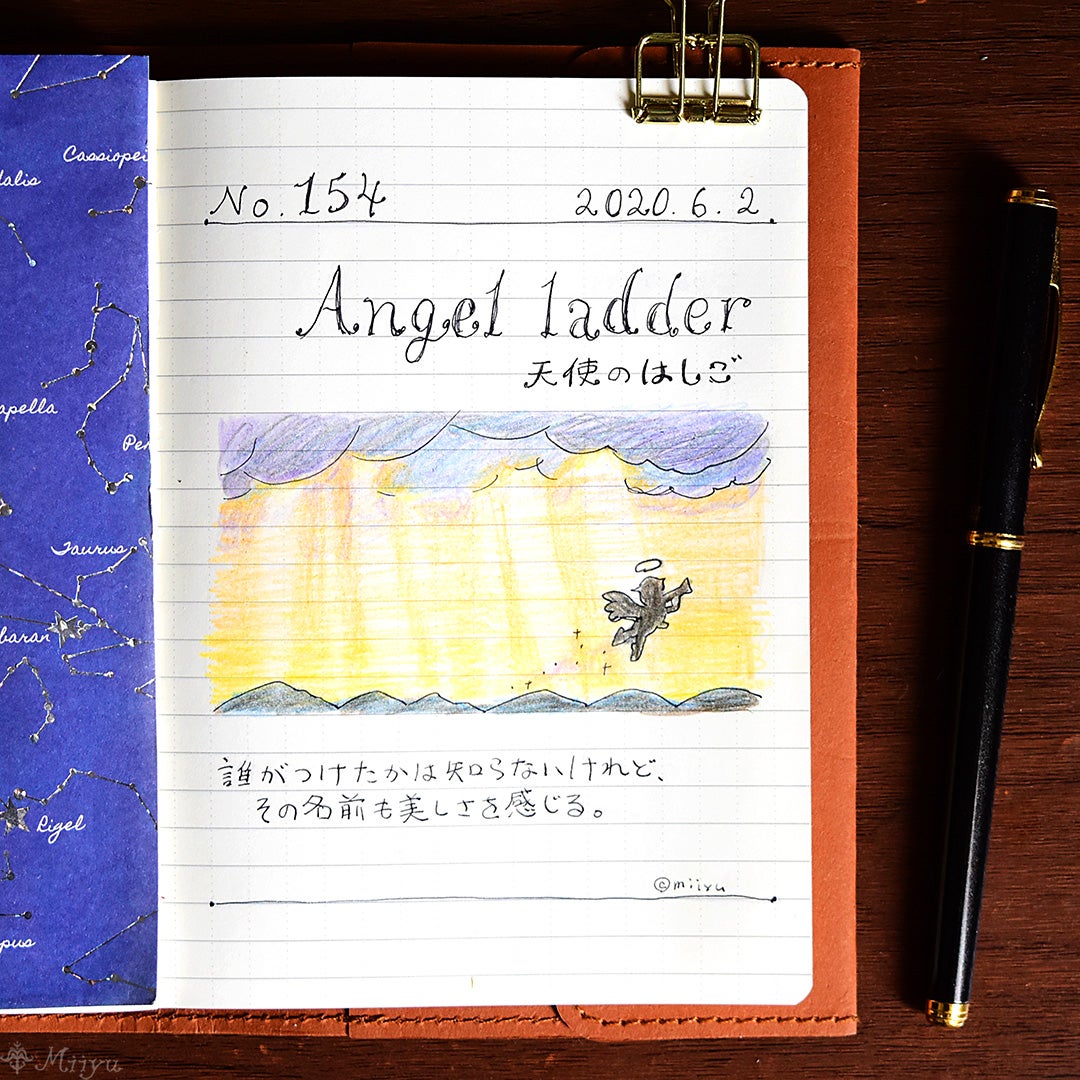 No. 154
2020. 6. 2
Angel ladder
天使のはしご
誰がつけたかは知らないけれど、
その名前も美しさを感じる。
©miiyu
Cassiopei
dalis
apella
Per
Taurus
baran
Rigel
pus
Miiyu